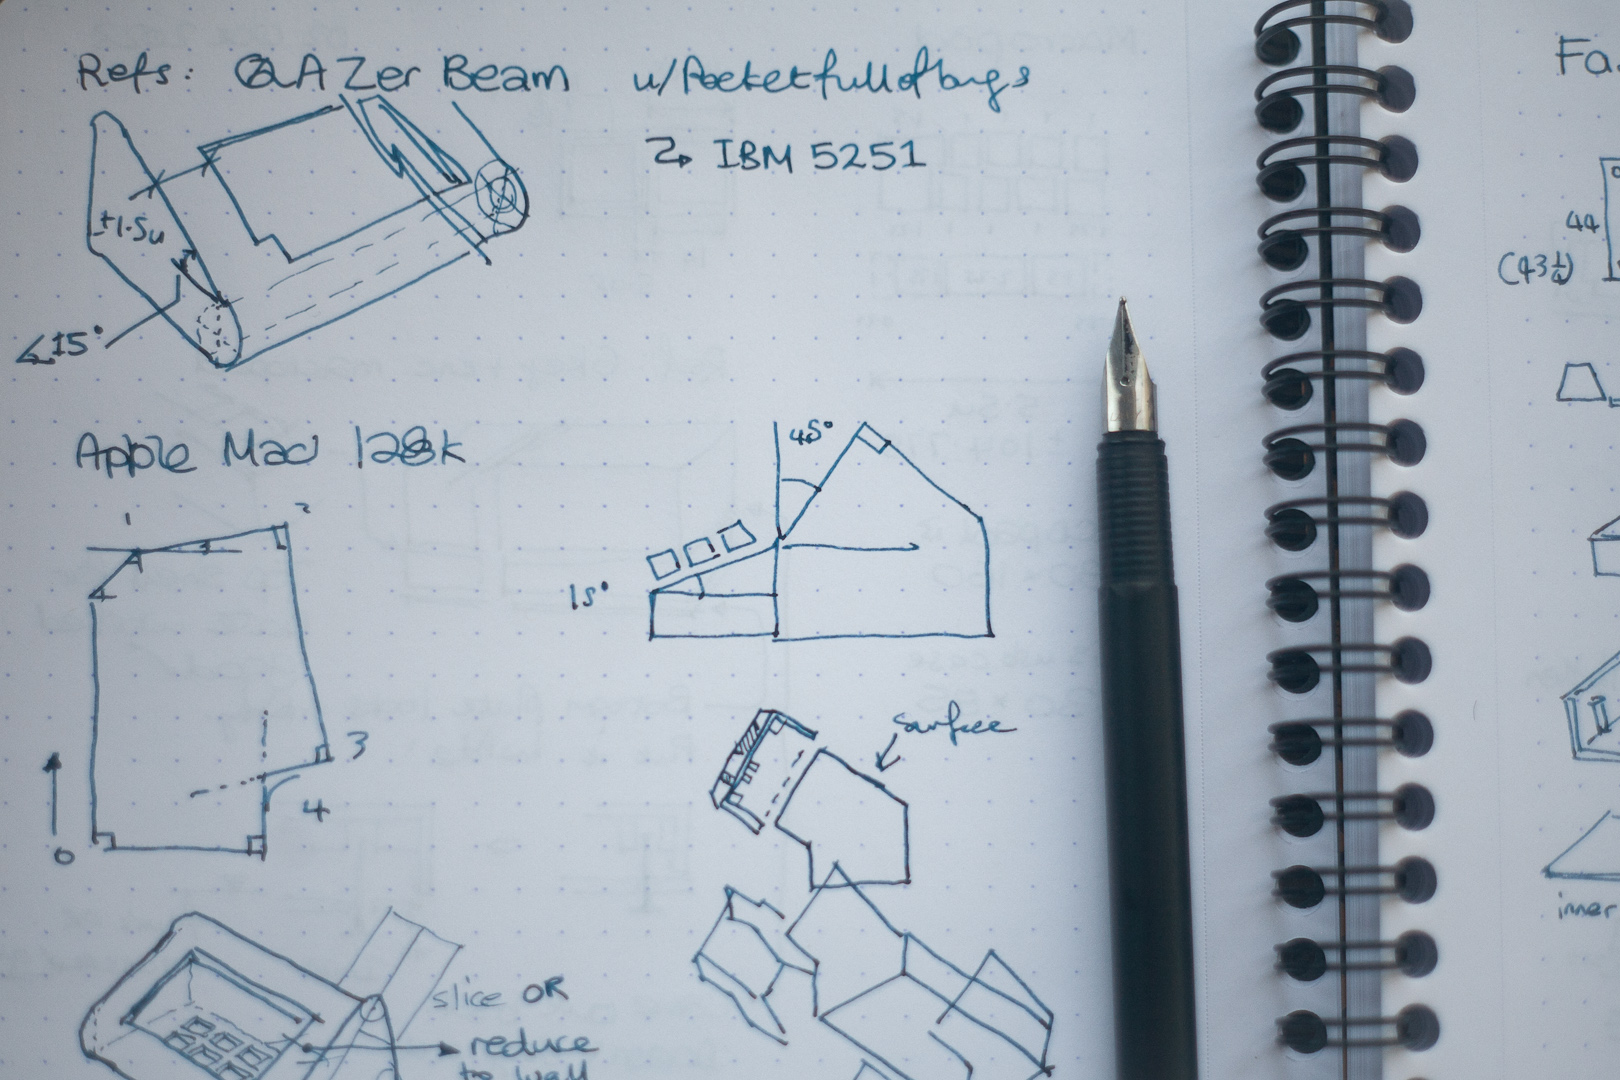 Refs: QLAZer Beam u/Pocketfullofbugs
IBM 5251
±1.5u
∡15°
Apple Mac 128k
45°
15°
1
2
3
4
0
surface
slice OR
reduce
to wall
Fa
44
(43½)
inner